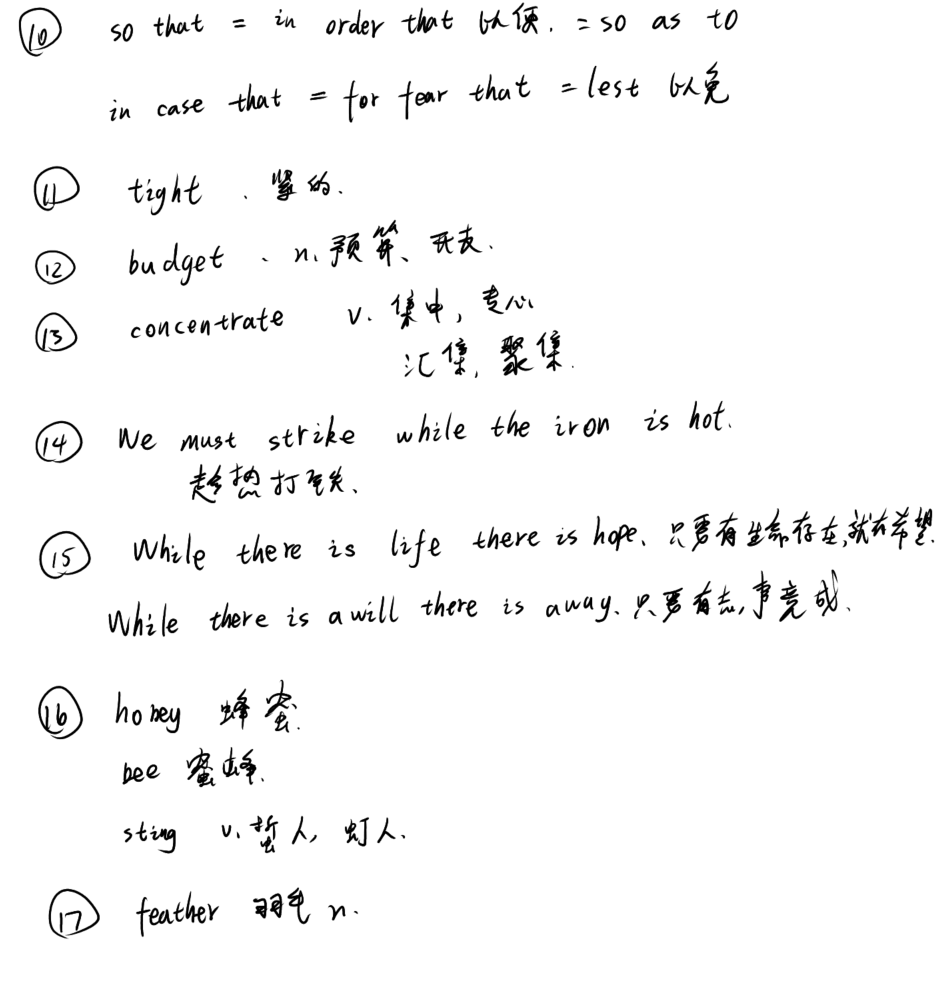 ⑩ so that = in order that 以便. = so as to
in case that = for fear that = lest 以免
⑪ tight . 紧的.
⑫ budget . n. 预算、开支.
⑬ concentrate v. 集中, 专心
汇集, 聚集.
⑭ We must strike while the iron is hot.
趁热打铁.
⑮ While there is life there is hope. 只要有生命存在,就有希望.
While there is a will there is away. 只要有志,事竟成.
⑯ honey 蜂蜜.
bee 蜜蜂.
sting v. 蜇人, 叮人.
⑰ feather 羽毛 n.